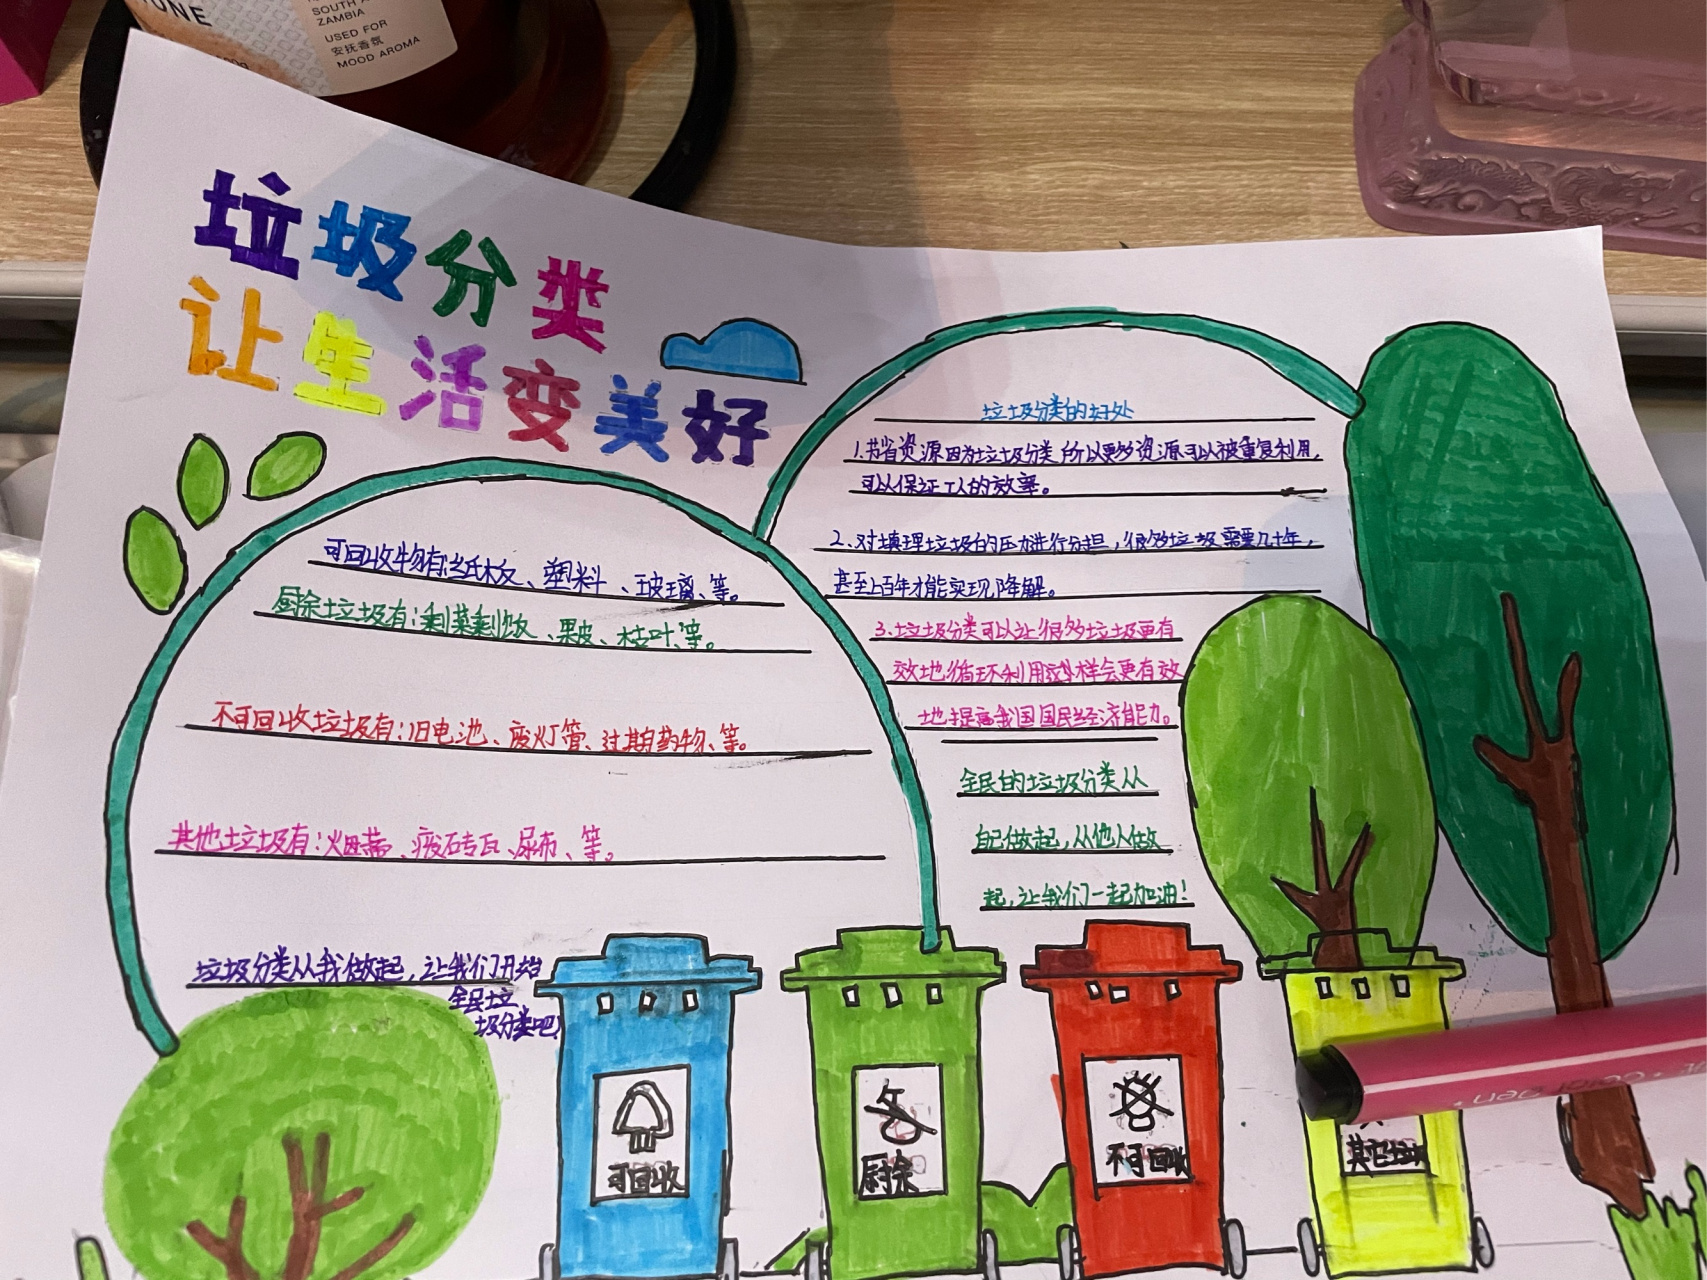 SOUTH A
ZAMBIA
USED FOR
安抚香氛
MOOD AROMA
垃圾分类
让生活变美好
可回收物有:纸板、塑料、玻璃、等。
厨余垃圾有:剩菜剩饭、果皮、枝叶、等。
不可回收垃圾有:旧电池、废灯管、过期药物、等。
其他垃圾有:烟蒂、废砖瓦、尿布、等。
垃圾分类从我做起,让我们开始
全民垃
圾分类吧!
垃圾分类的好处
1.节省资源因为垃圾分类所以更多资源可以被重复利用,
可以保证工人的效率。
2、对填埋垃圾的压力进行分担,很多垃圾需要几十年,
甚至上百年才能实现降解。
3、垃圾分类可以让很多垃圾更有
效地循环利用 样会更有效
地提高我国国民经济能力。
全民的垃圾分类从
自己做起,从他人做
起,让我们一起加油!
可回收
厨余
不可回收
其它垃圾